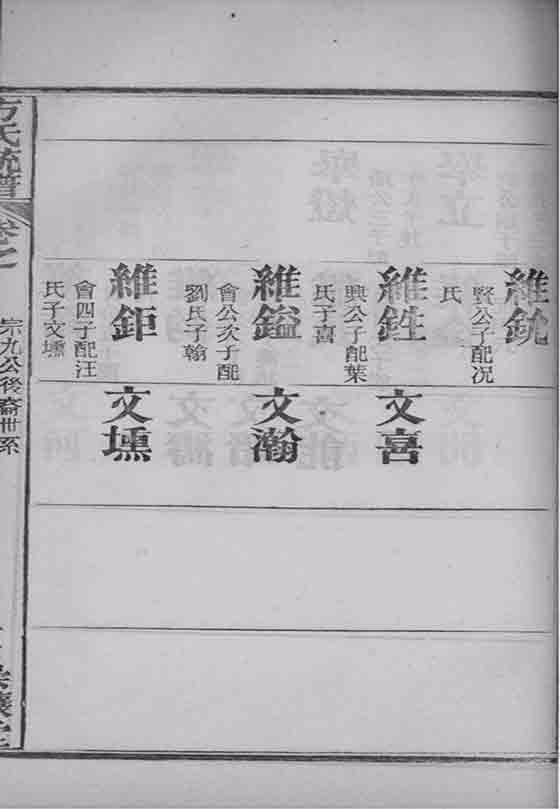 維鈗
賢公子配况
氏
維鉎
興公子配葉
氏子喜
維鎰
會公次子配
劉氏子翰
維鉅
會四子配汪
氏子文壎
文喜
文瀚
文壎
方氏統譜
卷之
崇九公後裔世系